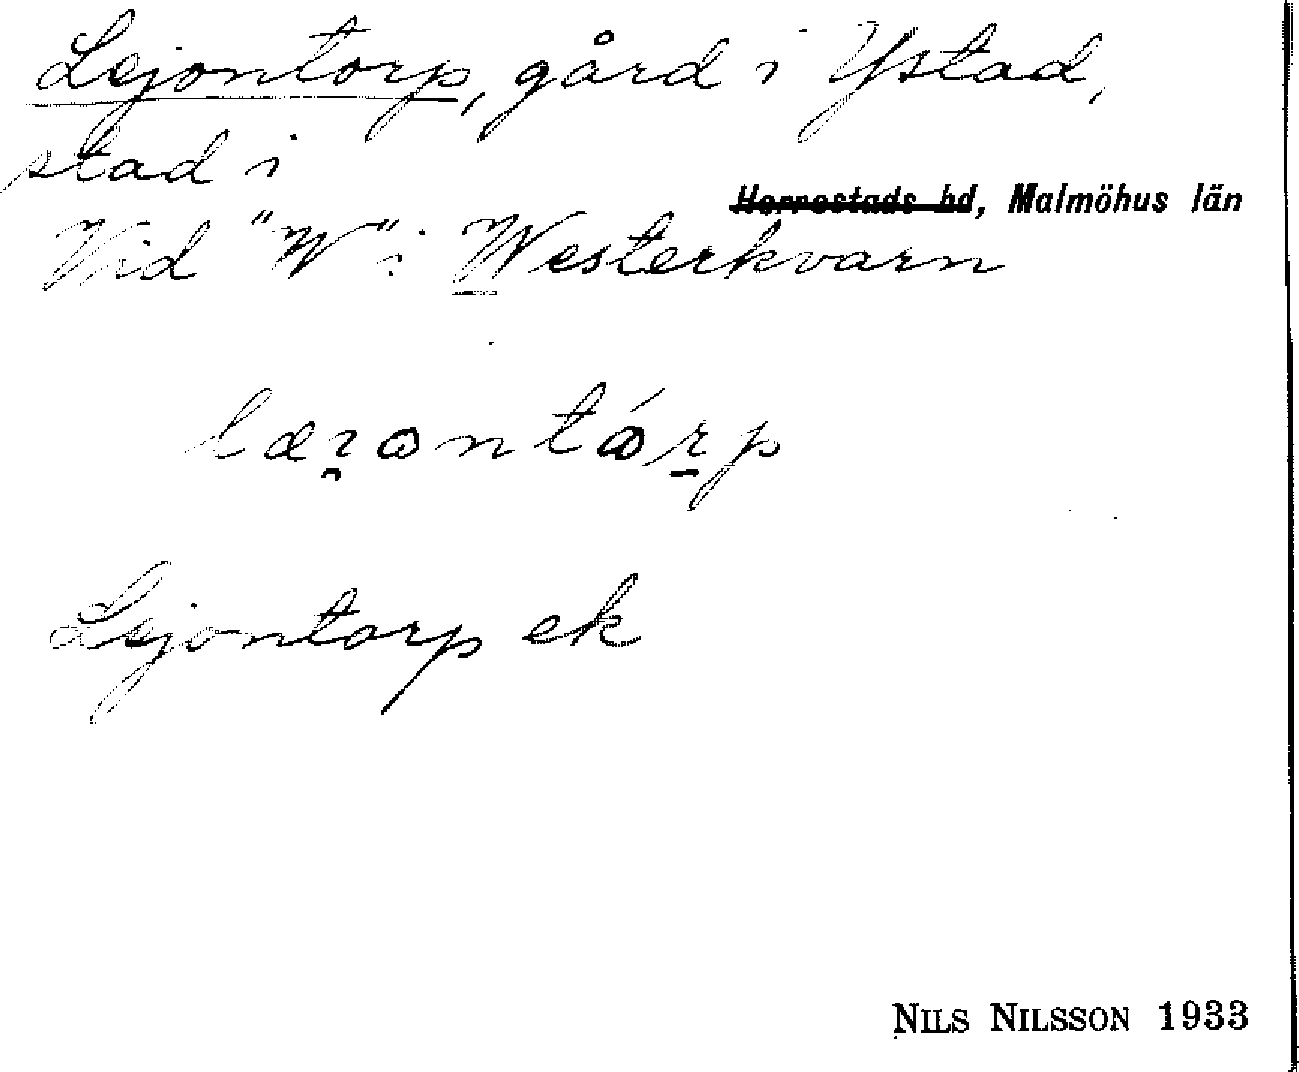 Lejontorp, gård i Ystad,
stad i
Herrestads hd, Malmöhus län
Vid "W" i Westerkvarn
Lejontorp ek
NILS NILSSON 1933